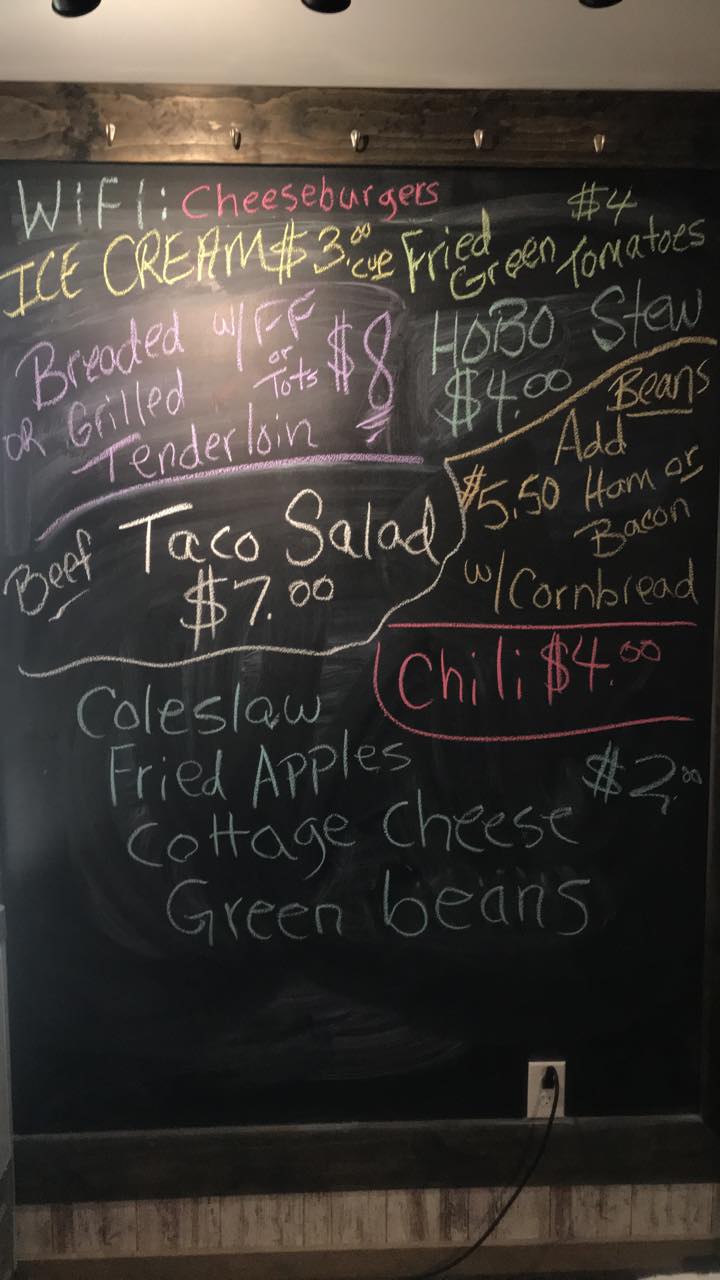 WiFi: Cheeseburgers
ICE CREAM $3.00
$4
Fried Green Tomatoes
Breaded w/ FF or Tots $8
OR Grilled
Tenderloin
HOBO Stew
$4.00
Beans
Add
$5.50 Ham or
Bacon
w/ Cornbread
Beef Taco Salad
$7.00
Chili $4.00
Coleslaw
Fried Apples
$2.00
Cottage cheese
Green beans